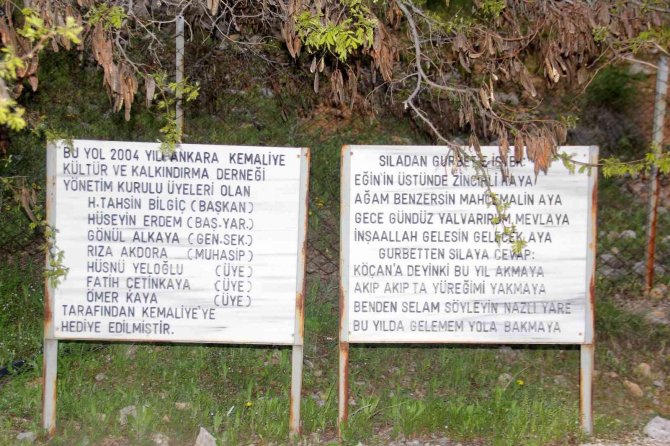 BU YOL 2004 YILI ANKARA KEMALİYE
KÜLTÜR VE KALKINDIRMA DERNEĞİ
YÖNETİM KURULU ÜYELERİ OLAN
H.TAHSİN BİLGİÇ (BAŞKAN)
HÜSEYİN ERDEM (BAŞ.YAR.)
GÖNÜL ALKAYA (GEN.SEK.)
RIZA AKDORA (MUHASİP)
HÜSNÜ YELOĞLU (ÜYE)
FATİH ÇETİNKAYA (ÜYE)
ÖMER KAYA (ÜYE)
TARAFINDAN KEMALİYE'YE
HEDİYE EDİLMİŞTİR.
SILADAN GURBETE
EĞİN'İN ÜSTÜNDE ZİNCİRLİ KAYA
AĞAM BENZERSİN MAHÇEMALİN AYA
GECE GÜNDÜZ YALVARIRIM MEVLAYA
İNŞAALLAH GELESİN GELECEK AYA
GURBETTEN SILAYA CEVAP:
KÖÇAN'A DEYİNKİ BU YIL AKMAYA
AKIP AKIP TA YÜREĞİMİ YAKMAYA
BENDEN SELAM SÖYLEYİN NAZLI YARE
BU YILDA GELEMEM YOLA BAKMAYA